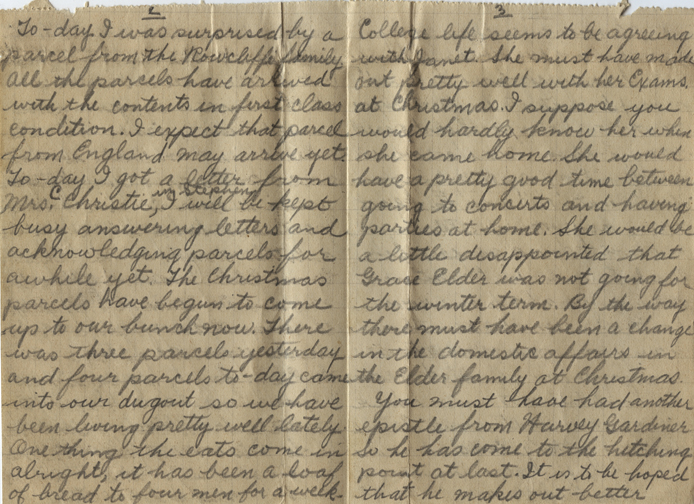 2
To-day I was surprised by a
parcel from the Rowcliffe family
all the parcels have arrived
with the contents in first class
condition. I expect that parcel
from England may arrive yet.
To-day I got a letter from
Mrs. C Christie, in I will be kept
busy answering letters and
acknowledging parcels for
awhile yet. The Christmas
parcels have begun to come
up to our bunch now. There
was three parcels yesterday
and four parcels to-day came
into our dugout so we have
been living pretty well lately.
One thing the eats come in
alright, it has been a loaf
of bread to four men for a week
3
College life seems to be agreeing
with Janet. She must have made
out pretty well with her Exams.
at Christmas. I suppose you
would hardly know her when
she came home. She would
have a pretty good time between
going to consirts and having
parties at home. She would be
a little disappointed that
Grace Elder was not going for
the winter term. By the way
there must have been a change
in the domestic affairs in
the Elder family at Christmas.
You must have had another
epistle from Harvey Gardiner
So he has come to the hitching
point at last. It is to be hoped
that he makes out better